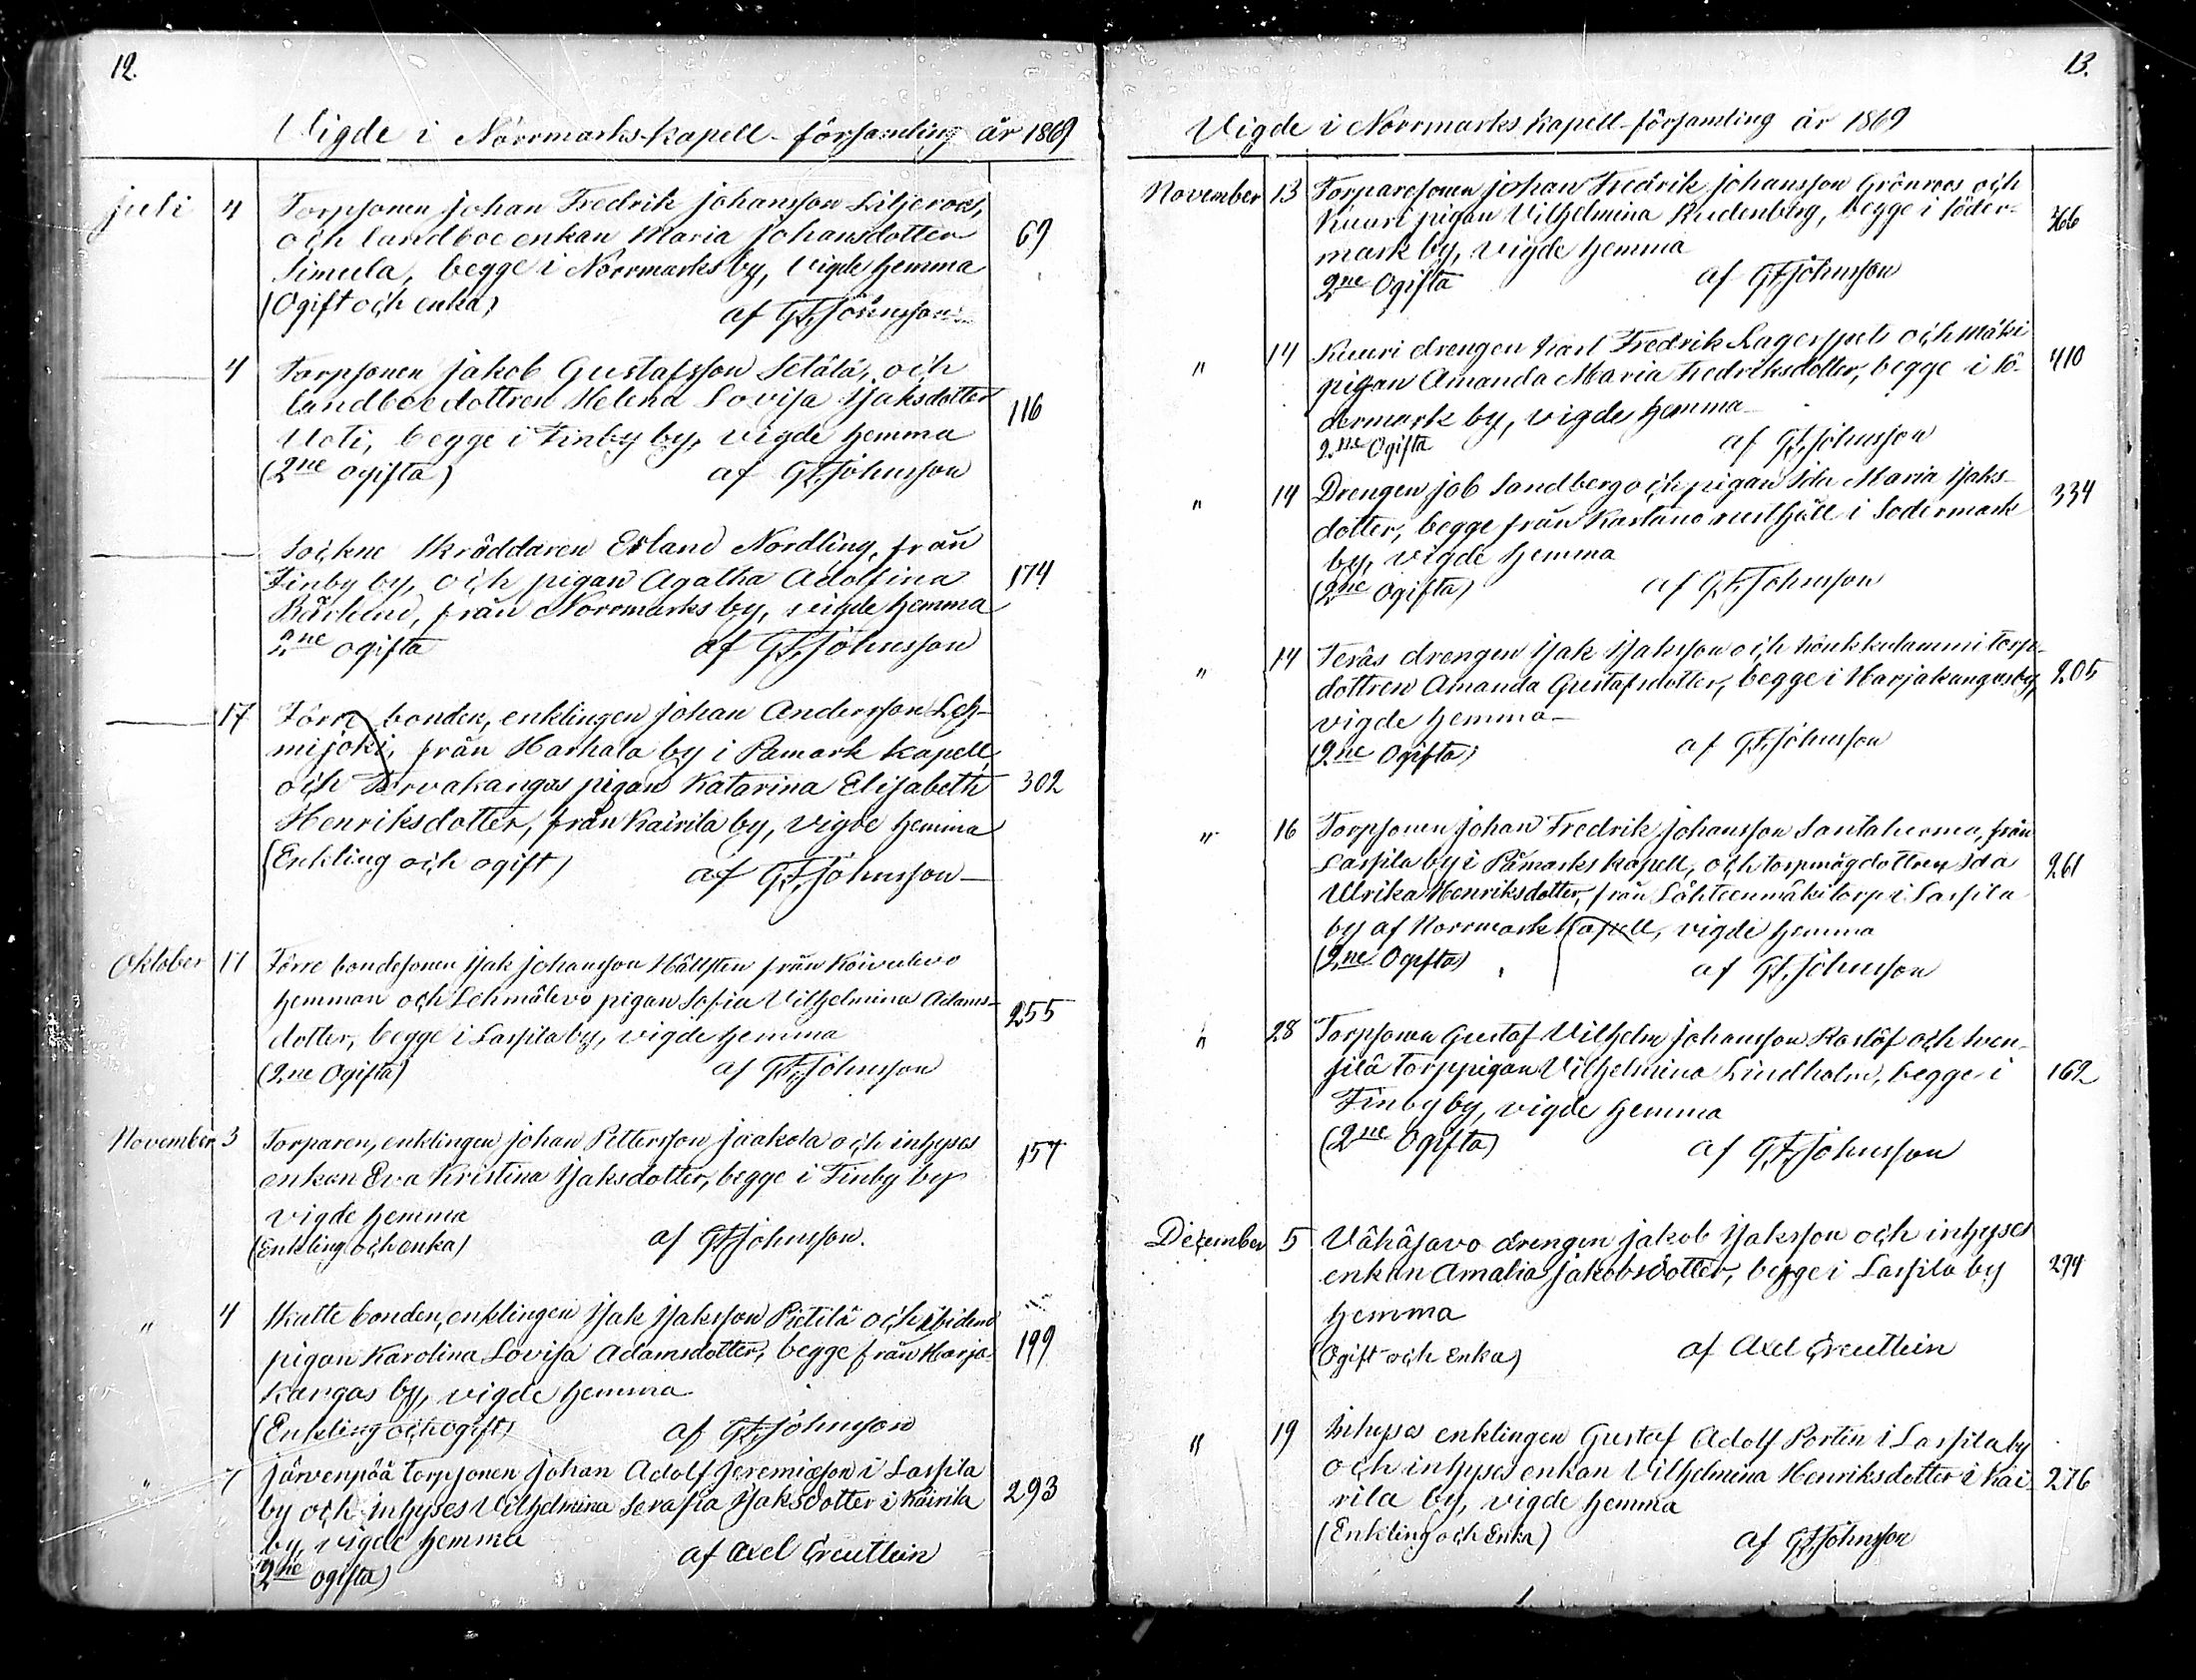 12.
Vigde i Norrmarks-kapell-församling år 1869
juli 4 Torpsonen Johan Fredrik Johansson Liljeroos,
och landboe enkan Maria Johansdotter 69
Simula, begge i Norrmarks by, vigde hemma
(Ogift och enka) af G.F. Johnsson
4 Torpsonen Jakob Gustafsson Setälä, och
landboedottren Helena Lovisa Isaksdotter 116
Uoti, begge i Finby by, vigde hemma
(2ne ogifta) af G.F. Johnsson
Sockne skräddaren Erland Nordling, från
Finby by, och pigan Agatha Adolfina 174
Bärlund, från Norrmarks by, vigde hemma
2ne ogifta af G.F. Johnsson
17 Törre bonden, enklingen Johan Andersson Leh-
mijoki, från Harhala by i Pamark kapell,
och Tervakangas pigan Katarina Elisabeth 302
Henriksdotter, från Kairila by, vigde hemma
(Enkling och ogift) af G.F. Johnsson
Oktober 17 Törre bondesonen Isak Johansson Hällsten från Koivulevo
hemman och Lehmälevo pigan Sofia Vilhelmina Adams- 255
dotter, begge i Lassila by, vigde hemma
(2ne Ogifta) af G.F. Johnsson
November 3 Torparen, enklingen Johan Pettersson Jaakola och inhyses 157
enkan Eva Kristina Isaksdotter, begge i Finby by
vigde hemma
(Enkling och enka) af G.F. Johnsson.
" 4 Skatte bonden, enklingen Isak Isaksson Pietilä och ibidem
pigan Karolina Lovisa Adamsdotter, begge från Harja- 199
kangas by, vigde hemma
(Enkling och ogift) af G.F. Johnsson
" 7 Järvenpää torpsonen Johan Adolf Jeremiasson i Lassila
by och inhyses Vilhelmina Serafia Isaksdotter i Kairila 293
by, vigde hemma
(2ne ogifta) af Axel Creutlein
13.
Vigde i Norrmarks kapell-församling år 1869
November 13 Torparesonen Johan Fredrik Johansson Grönroos och
Kuuri pigan Vilhelmina Rudenberg, begge i Söder- 366
mark by, vigde hemma
2ne Ogifta af G.F. Johnsson
" 14 Kuuri drengen Karl Fredrik Lagerspets och Mäki
pigan Amanda Maria Fredriksdotter, begge i Sö- 410
dermark by, vigde hemma
2ne Ogifta af G.F. Johnsson
" 14 Drengen Job Sandberg och pigan Ida Maria Isaks- 334
dotter, begge från Kartano rusthåll i Södermark
by, vigde hemma
(2ne Ogifta) af G.F. Johnsson
" 14 Teräs drengen Isak Isaksson och torp-
dottren Amanda Gustafsdotter, begge i Harjakangas by, 205
vigde hemma
(2ne Ogifta) af G.F. Johnsson
" 16 Torpsonen Johan Fredrik Johansson Santahuoma, från
Lassila by i Påmarks kapell, och torpmågdottren Ida 261
Ulrika Henriksdotter, från Lähteenmäki torp i Lassila
by af Norrmark kapell, vigde hemma
(2ne Ogifta) af G.F. Johnsson
" 28 Torpsonen Gustaf Vilhelm Johansson Rostöf och Sven-
silä torppigan Vilhelmina Lindholm, begge i 162
Finby by, vigde hemma
(2ne Ogifta) af G.F. Johnsson
December 5 Vähäsavo drengen Jakob Isaksson och inhyses
enkan Amalia Jakobsdotter, begge i Lassila by 294
hemma
(Ogift och Enka) af Axel Creutlein
" 19 Inhyses enklingen Gustaf Adolf Portin i Lassila by
och inhyses enkan Vilhelmina Henriksdotter i Kai- 276
rila by, vigde hemma
(Enkling och Enka) af G.F. Johnsson